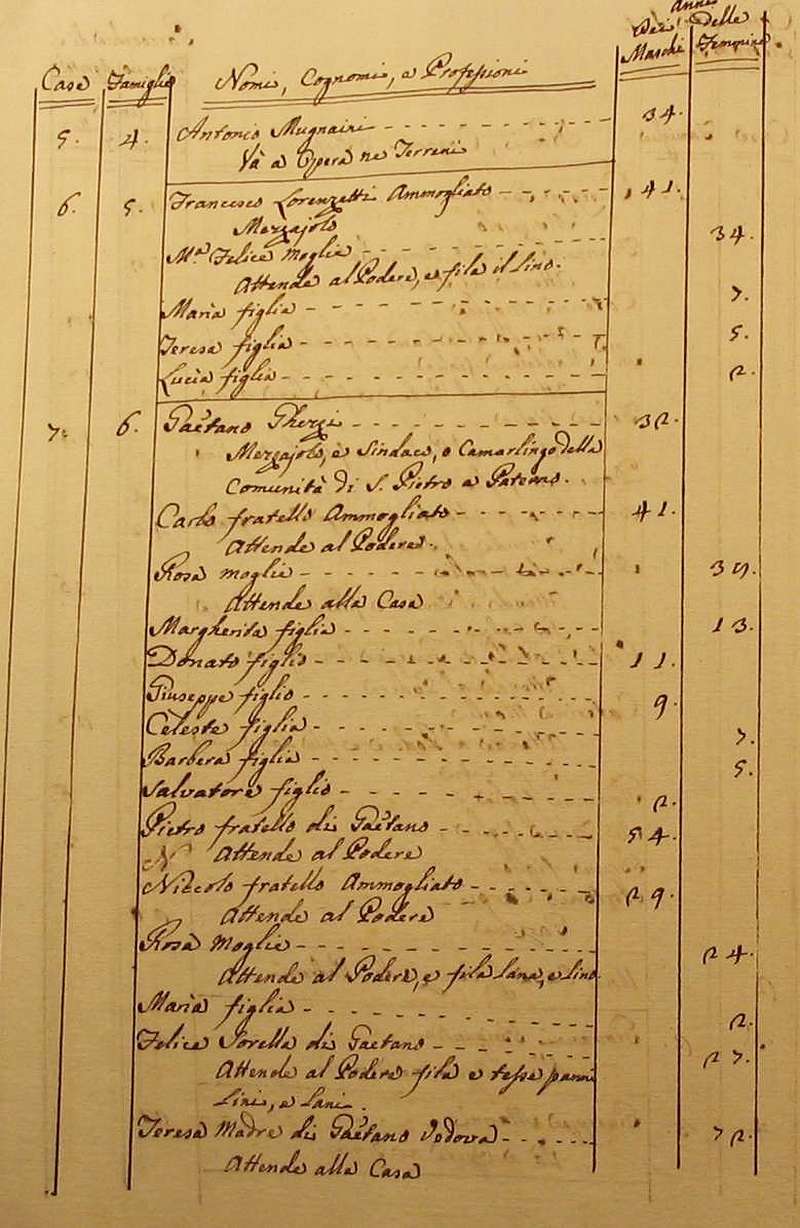 Anni
Case Famiglie Nomi, Cognomi, e Professioni Dei Maschi Delle Femmine
5. 4. Antonio Mugnaini 34.
Và a Opera ne Terreni
6. 5. Francesco Lorenzetti Ammogliato 41.
Mezzajolo
M.ª Felice Moglie 34.
Attende al Podere, e fila il lino.
Maria figlia 7.
Teresa figlia 5.
Lucia figlia 2.
7. 6. Gaetano Gherzi 32.
Mezzajolo, è Sindaco, o Camarlingo della
Comunità di S. Pietro a Paterno.
Carlo fratello Ammogliato 41.
Attende al Podere.
Rosa moglie 35.
Attende alla Casa
Margherita figlia 13.
Donato figlio 11.
Giuseppe figlio 9.
Celeste figlia 7.
Barbera figlia 5.
Salvatore figlio 2.
Pietro fratello di Gaetano 54.
N Attende al Podere
Niccolo fratello Ammogliato 29.
Attende al Podere
Rosa Moglie 24.
Attende al Podere, e fila lana, e lino
Maria figlia 2.
Felice Sorella di Gaetano 27.
Attende al Podere fila e tesse panni
Lini, e Lani.
Teresa Madre di Gaetano Vedova 72.
Attende alla Casa